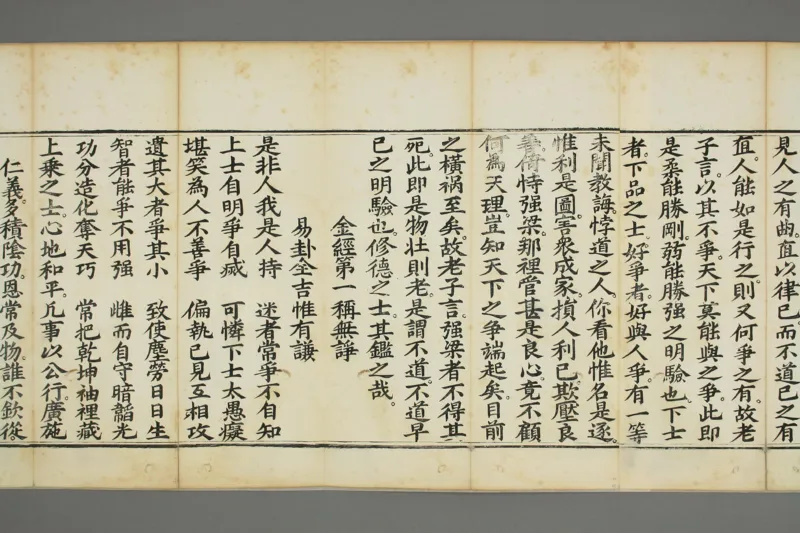 見人之有曲。直以律已而不道已之有
直。人能如是行之。則又何爭之有。故老
子言。以其不爭。天下莫能與之爭。此即
是柔能勝剛。弱能勝强之明驗也。下士
者。下品之士。好爭者。好與人爭。有一等
未聞教誨。悖道之人。你看他惟名是逐。
惟利是圖。害衆成家。損人利已。欺壓良
善。倚恃强梁。那裡管甚是良心。竟不顧
何為天理。豈知天下之爭端起矣。目前
之橫禍至矣。故老子言。强梁者不得其
死。此即是物壯則老。是謂不道。不道早
已之明驗也。修德之士。其鑑之哉。
金經第一稱無諍
易卦全吉惟有謙
是非人我是人持　迷者常爭不自知
上士自明爭自戚　可憐下士太愚癡
堪笑為人不善爭　偏執已見互相攻
遺其大者爭其小　致使塵勞日日生
智者能爭不用强　雌而自守暗韜光
功分造化奪天巧　常把乾坤袖裡藏
上乘之士。心地和平。凡事以公行。廣施
仁義。多積陰功。恩常及物。誰不欽從。